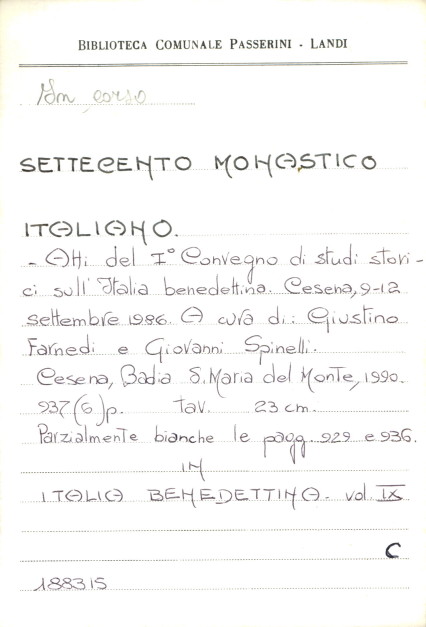 BIBLIOTECA COMUNALE PASSERINI - LANDI
In corso
SETTECENTO MONASTICO
ITALIANO.
- Atti del I° Convegno di studi stori-
ci sull'Italia benedettina. Cesena, 9-12
settembre 1986. A cura di: Giustino
Farnedi e Giovanni Spinelli.
Cesena, Badia S. Maria del Monte, 1990.
937(6)p. tav. 23 cm.
Parzialmente bianche le pagg. 929 e 936.
IN
ITALIA BENEDETTINA - vol. IX
C
188315